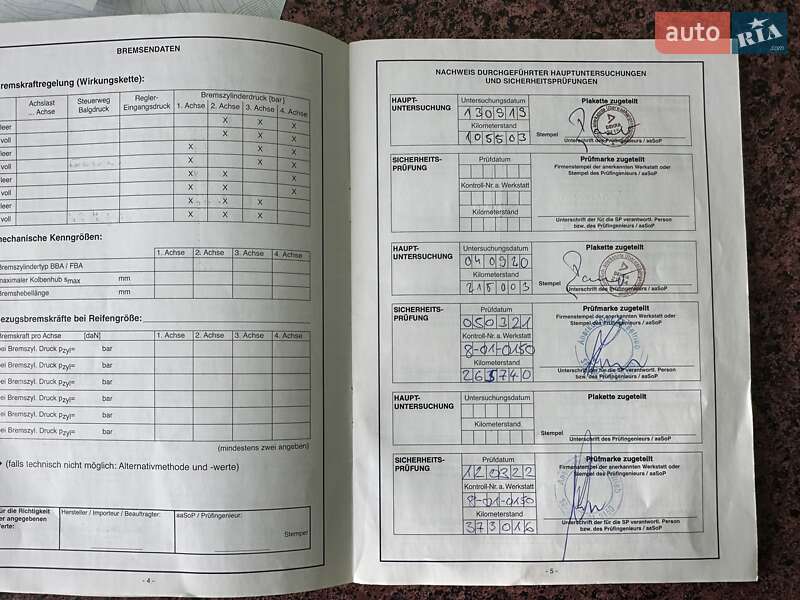 auto RIA.com
BREMSENDATEN
remskraftregelung (Wirkungskette):
Achslast ... Achse
Steuerweg Balgdruck
Regler- Eingangsdruck
Bremszylinderdruck [bar]
1. Achse 2. Achse 3. Achse 4. Achse
leer X X
voll X X
leer X X
voll X X
leer X X X
voll X X X
leer X X X
voll X X X
mechanische Kenngrößen:
1. Achse 2. Achse 3. Achse 4. Achse
Bremszylindertyp BBA / FBA
maximaler Kolbenhub smax mm
Bremshebellänge mm
ezugsbremskräfte bei Reifengröße:
Bremskraft pro Achse [daN] 1. Achse 2. Achse 3. Achse 4. Achse
bei Bremszyl. Druck pzyl= bar
bei Bremszyl. Druck pzyl= bar
bei Bremszyl. Druck pzyl= bar
bei Bremszyl. Druck pzyl= bar
bei Bremszyl. Druck pzyl= bar
bei Bremszyl. Druck pzyl= bar
(mindestens zwei angeben)
(falls technisch nicht möglich: Alternativmethode und -werte)
für die Richtigkeit
der angegebenen
Werte:
Hersteller / Importeur / Beauftragter:
aaSoP / Prüfingenieur:
Stempel
- 4 -
NACHWEIS DURCHGEFÜHRTER HAUPTUNTERSUCHUNGEN
UND SICHERHEITSPRÜFUNGEN
HAUPT-
UNTERSUCHUNG
Untersuchungsdatum
130919
Kilometerstand
105503
Plakette zugeteilt
Stempel
Unterschrift des Prüfingenieurs / aaSoP
SICHERHEITS-
PRÜFUNG
Prüfdatum
Kontroll-Nr. a. Werkstatt
Kilometerstand
Prüfmarke zugeteilt
Firmenstempel der anerkannten Werkstatt oder
Stempel des Prüfingenieurs / aaSoP
Unterschrift der für die SP verantwortl. Person
bzw. des Prüfingenieurs / aaSoP
HAUPT-
UNTERSUCHUNG
Untersuchungsdatum
040920
Kilometerstand
215003
Plakette zugeteilt
Stempel
Unterschrift des Prüfingenieurs / aaSoP
SICHERHEITS-
PRÜFUNG
Prüfdatum
050321
Kontroll-Nr. a. Werkstatt
8-01-0150
Kilometerstand
265740
Prüfmarke zugeteilt
Firmenstempel der anerkannten Werkstatt oder
Stempel des Prüfingenieurs / aaSoP
Unterschrift der für die SP verantwortl. Person
bzw. des Prüfingenieurs / aaSoP
HAUPT-
UNTERSUCHUNG
Untersuchungsdatum
Kilometerstand
Plakette zugeteilt
Stempel
Unterschrift des Prüfingenieurs / aaSoP
SICHERHEITS-
PRÜFUNG
Prüfdatum
120322
Kontroll-Nr. a. Werkstatt
8-01-0150
Kilometerstand
373016
Prüfmarke zugeteilt
Firmenstempel der anerkannten Werkstatt oder
Stempel des Prüfingenieurs / aaSoP
Unterschrift der für die SP verantwortl. Person
bzw. des Prüfingenieurs / aaSoP
- 5 -